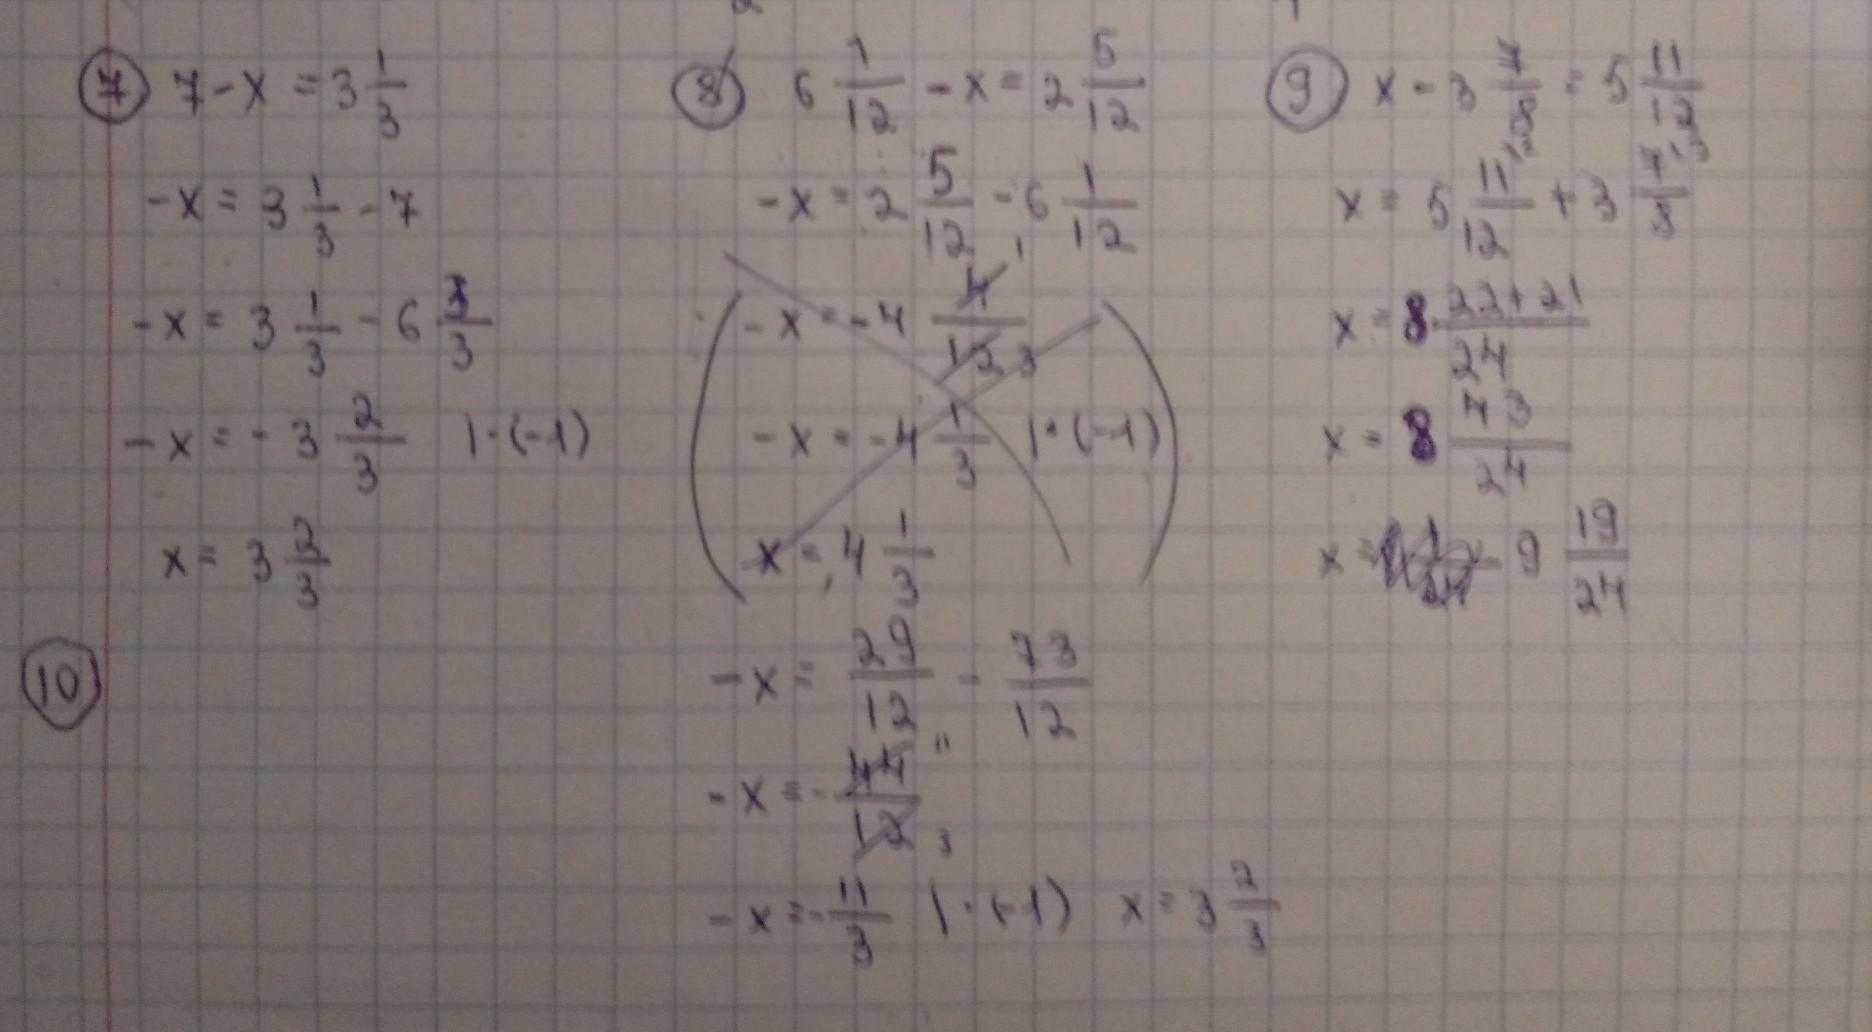 ⑦ 7 - x = 3 1/3
-x = 3 1/3 - 7
-x = 3 1/3 - 6 3/3
-x = - 3 2/3 | · (-1)
x = 3 2/3
⑧ 6 1/12 - x = 2 5/12
-x = 2 5/12 - 6 1/12
-x = -4 4/12 1 3
-x = -4 1/3 | · (-1)
x = 4 1/3
-x = 29/12 - 73/12
-x = - 44/12 11 3
-x = - 11/3 | · (-1) x = 3 2/3
⑨ x - 3 7/8 = 5 11/12
x = 5 11/12 + 3 7/8
x = 8 22+21/24
x = 8 43/24
x = 9 19/24
⑩